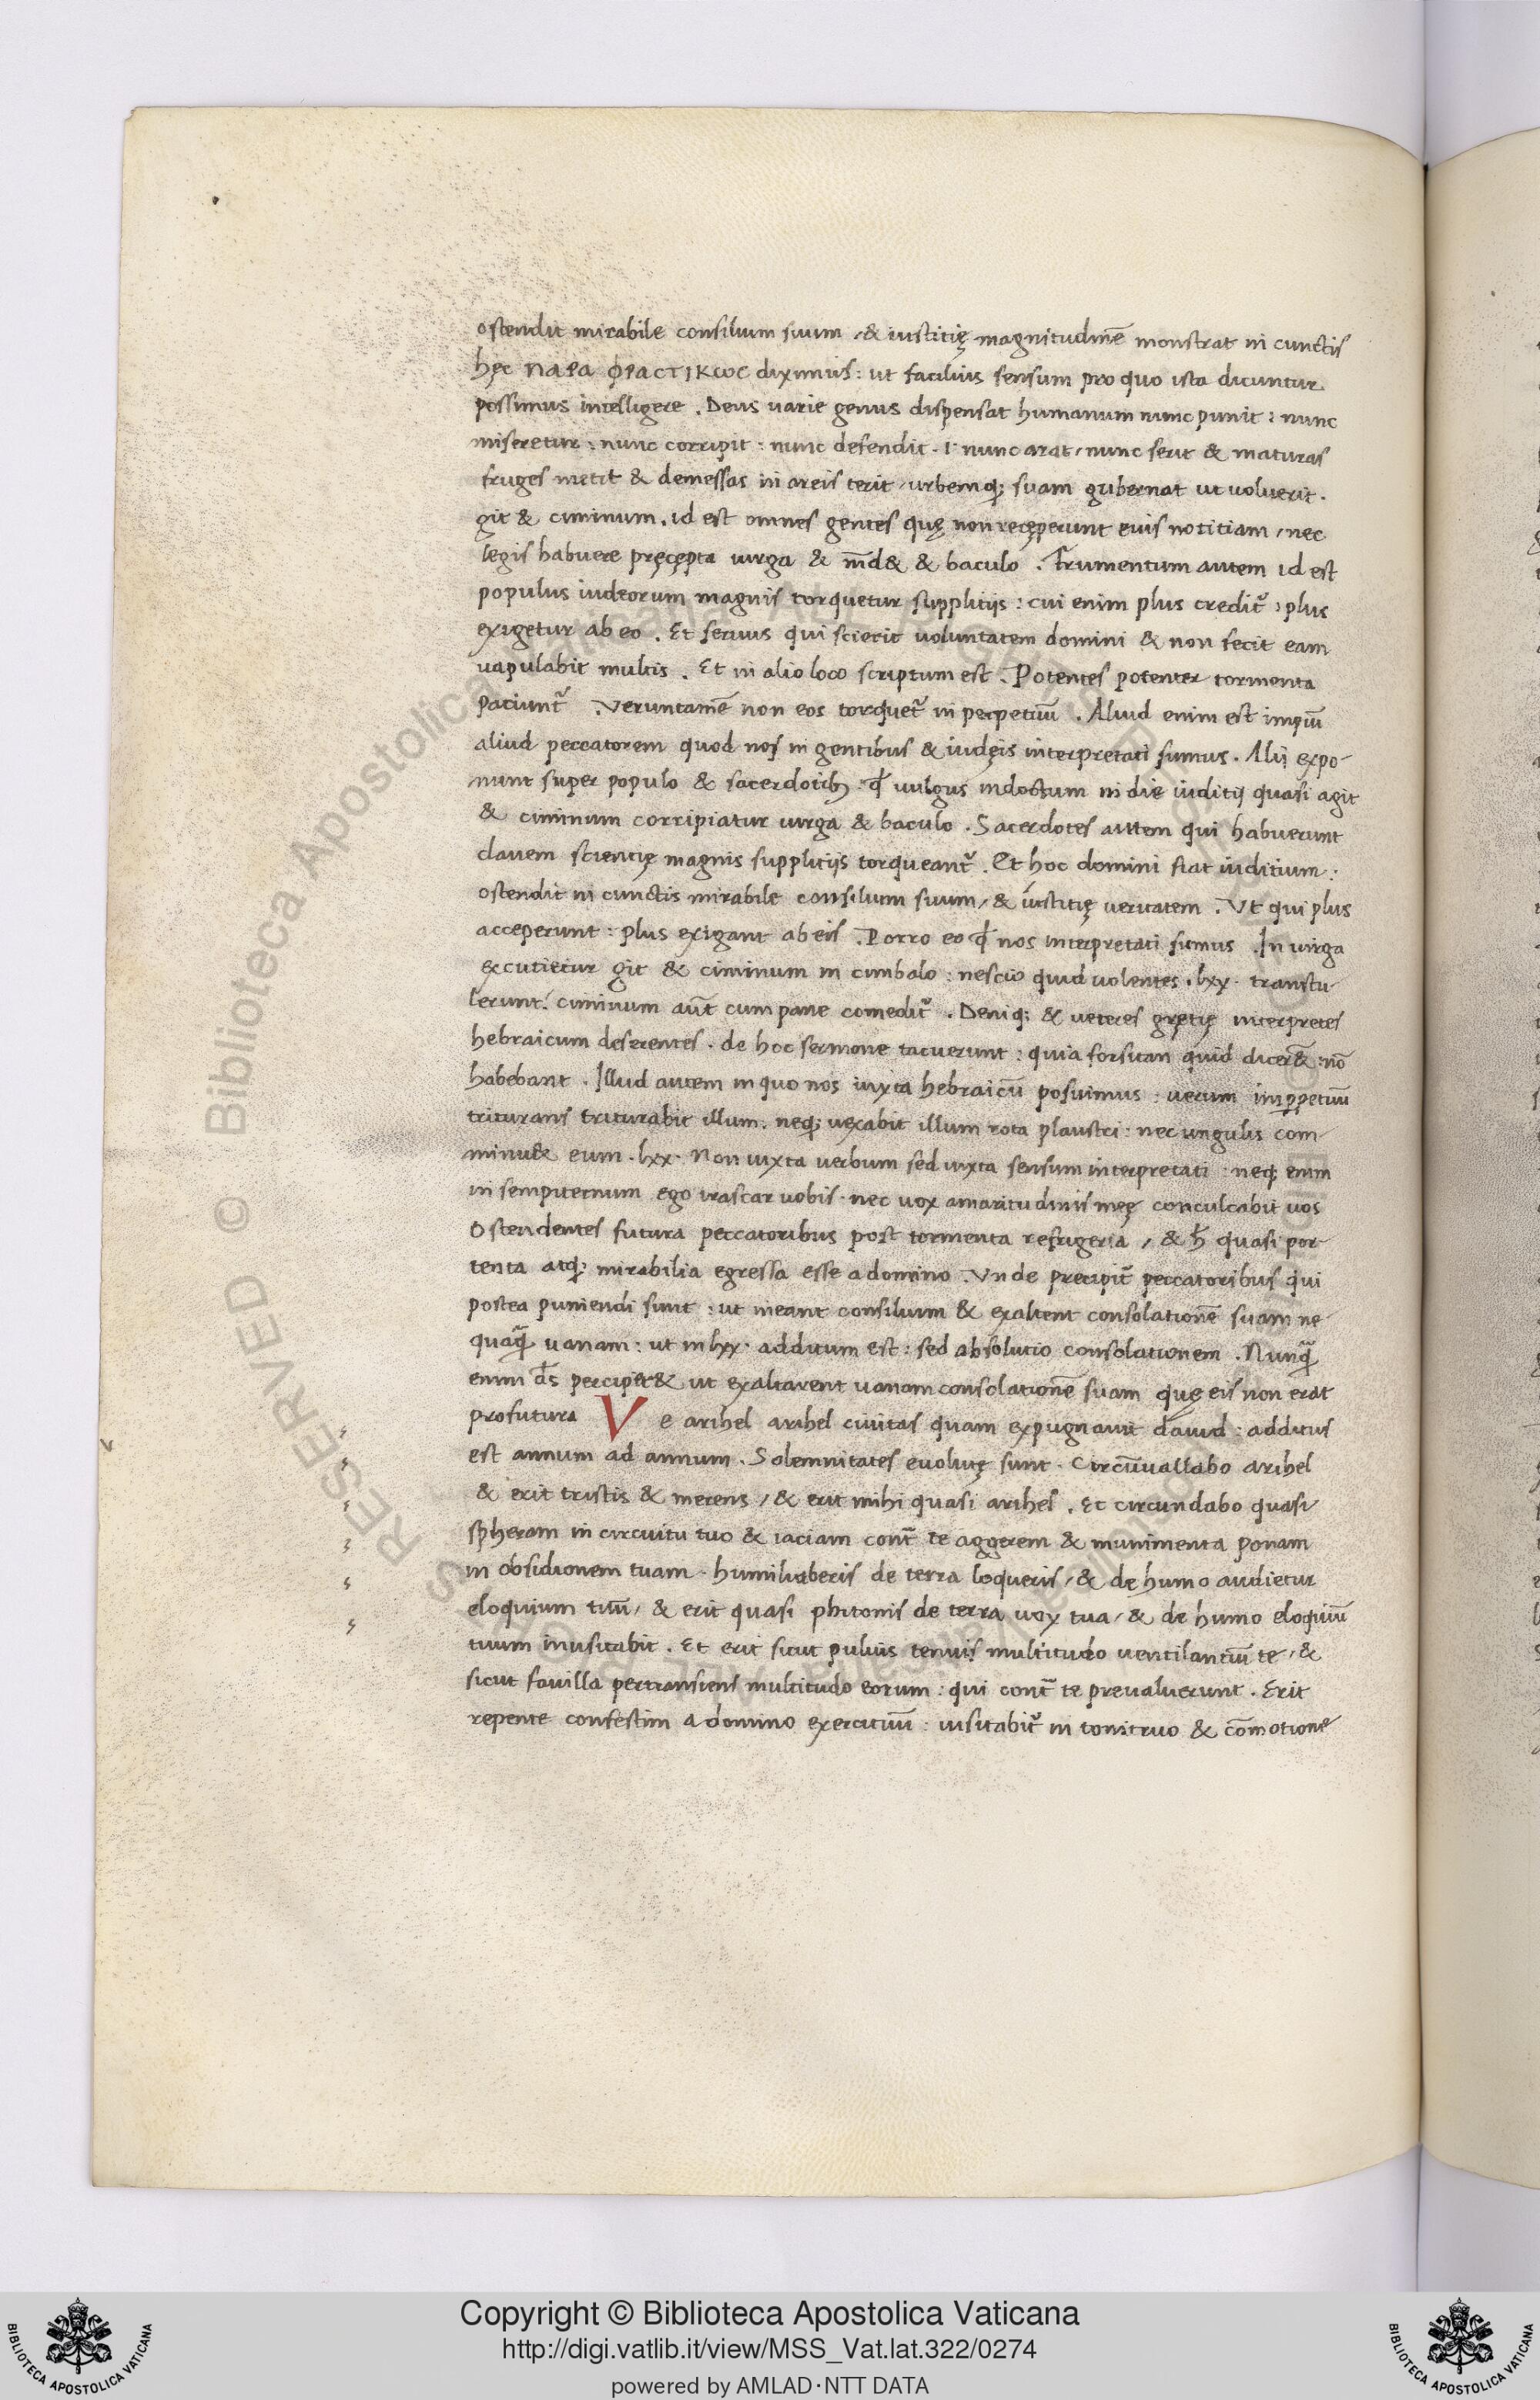 ostendit mirabile consilium suum / & iustitię magnitudinē monstrat in cunctis
hęc ΠΑΡΑ ΦΡΑCΤΙΚωC diximus: ut facilius sensum pro quo ista dicuntur
possimus intelligere . Deus uarie genus dispensat humanum nunc punit: nunc
miseretur: nunc corripit: nunc defendit. I nunc arat / nunc serit & maturas
fruges metit & demessas in areis terit / urbemq; suam gubernat ut uoluerit.
git & ciminum. id est omnes gentes quę non recęperunt eius notitiam / nec
legis habuere pręcępta uirga & m̄d& & baculo . Frumentum autem id est
populus iudeorum magnis torquetur supplitijs: cui enim plus credit᷑: plus
exigetur ab eo . Et seruus qui scierit uoluntatem domini & non fecit eam
uapulabit multis . Et in alio loco scriptum est . Potentes potenter tormenta
patiunt᷑ . Veruntamē non eos torquet᷑ in perpetuū . Aliud enim est impiū
aliud peccatorem quod nos in gentibus & iudęis interpretati sumus. Alij expo-
nunt super populo & sacerdotib; qđ uulgus indoctum in die iuditij quasi agit
& ciminum corripiatur uirga & baculo . Sacerdotes autem qui habuerunt
clauem scientię magnis supplitijs torqueant᷑. Et hoc domini fiat iuditium:
ostendit in cunctis mirabile consilium suum / & iustitię ueritatem . Ut qui plus
acceperunt: plus exigant ab eis . Porro eo qđ nos interpretati sumus . In uirga
excutietur git & ciminum in cimbalo: nescio quid uolentes . lxx. transtu-
lerunt. ciminum aūt cum pane comedit᷑ . Deniq; & ueteres grętię interpretes
hebraicum deserentes. de hoc sermone tacuerunt: quia forsitan quid dicer&̄: nō
habebant . Illud autem in quo nos iuxta hebraicū posuimus: uerum inp̱petuū
triturans triturabit illum. neq; uexabit illum rota plaustri: nec ungulis com-
minu& eum. lxx. Non iuxta uerbum sed iuxta sensum interpretati: neq; enim
in sempiternum ego irascar uobis. nec uox amaritudinis meę conculcabit uos
Ostendentes futura peccatoribus post tormenta refrigeria , & h̄ quasi por-
tenta atq; mirabilia egressa esse a domino . Unde precipit᷑ peccatoribus qui
postea puniendi sunt: ut ineant consilium & exaltent consolationē suam ne-
quaq̄ uanam: ut in lxx. additum est: sed absolutio consolationem . Nunq̄
enim d̄s percipet& ut exaltarent uanam consolationē suam quę eis non erat
profutura Ve arihel arihel ciuitas quam expugnauit dauid: additus
est annum ad annum. Solemnitates euolutę sunt. Circūuallabo arihel
& erit tristis & merens / & erit mihi quasi arihel . Et circundabo quasi
spheram in circuitu tuo & iaciam cont᷑ te aggerem & munimenta ponam
in obsidionem tuam. humiliaberis de terra loqueris / & de humo audietur
eloquium tuū / & erit quasi phitonis de terra uox tua / & de humo eloquiū
tuum inusitabit . Et erit sicut puluis tenuis multitudo uentilantiū te / &
sicut fauilla pertransiens multitudo eorum: qui cont᷑ te preualuerunt. Erit
repente confestim a domino exercituū: uisitabit᷑ in tonitruo & cōmotione
Copyright © Biblioteca Apostolica Vaticana
http://digi.vatlib.it/view/MSS_Vat.lat.322/0274
powered by AMLAD·NTT DATA